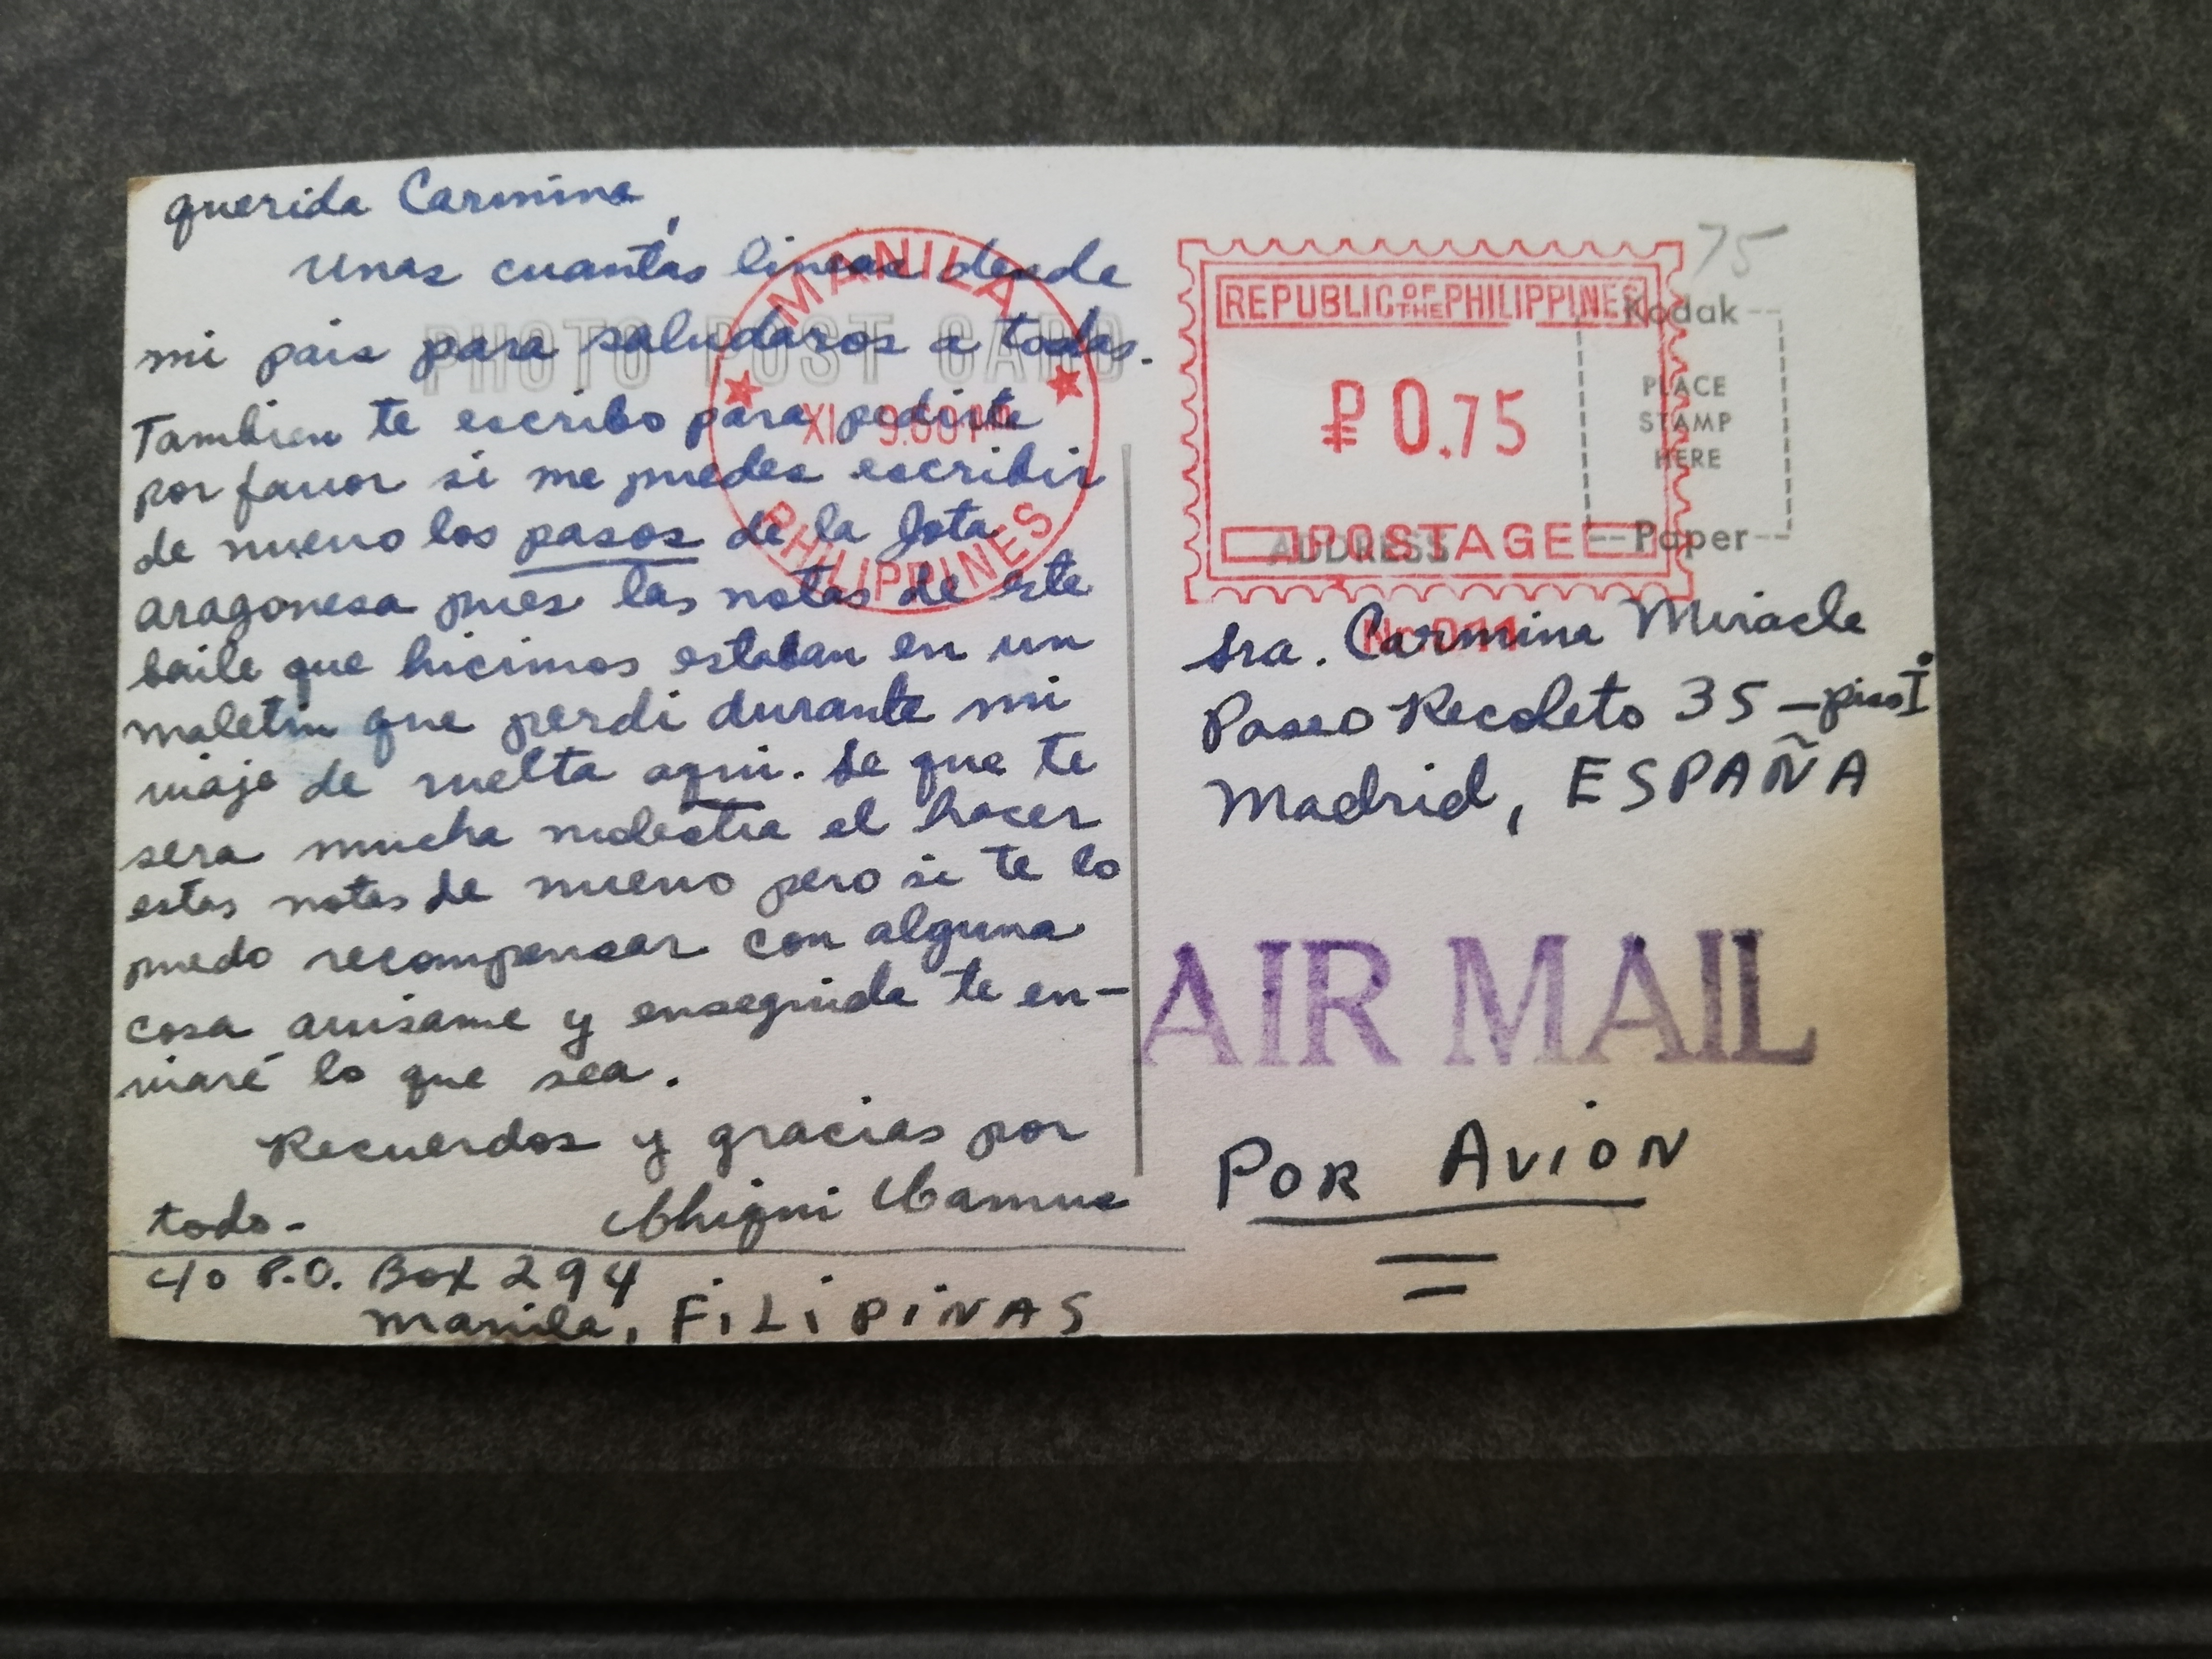 querida Carmina,
Unas cuantas lineas desde
mi pais para saludaros a todas.
Tambien te escribo para pedirte
por favor si me puedes escribir
de nuevo los pasos de la Jota
aragonesa pues las notas de este
baile que hicimos estaban en un
maletin que perdi durante mi
viaje de vuelta aqui. Se que te
sera mucha molestia el hacer
estas notas de nuevo pero si te lo
puedo recompensar con alguna
cosa avisame y enseguida te en-
viaré lo que sea.
Recuerdos y gracias por
todo-
Chiqui
c/o P.O. Box 294
Manila, FiLiPiNAS
PHOTO POST CARD
MANILA
XII 9:00 PM
PHILIPPINES
75
REPUBLIC OF THE PHILIPPINES
₱0.75
POSTAGE
Kodak
PLACE
STAMP
HERE
Paper
ADDRESS
Sra. Carmina Miracle
Paseo Recoleto 35 - piso I
Madrid, ESPAÑA
AIR MAIL
POR AViON